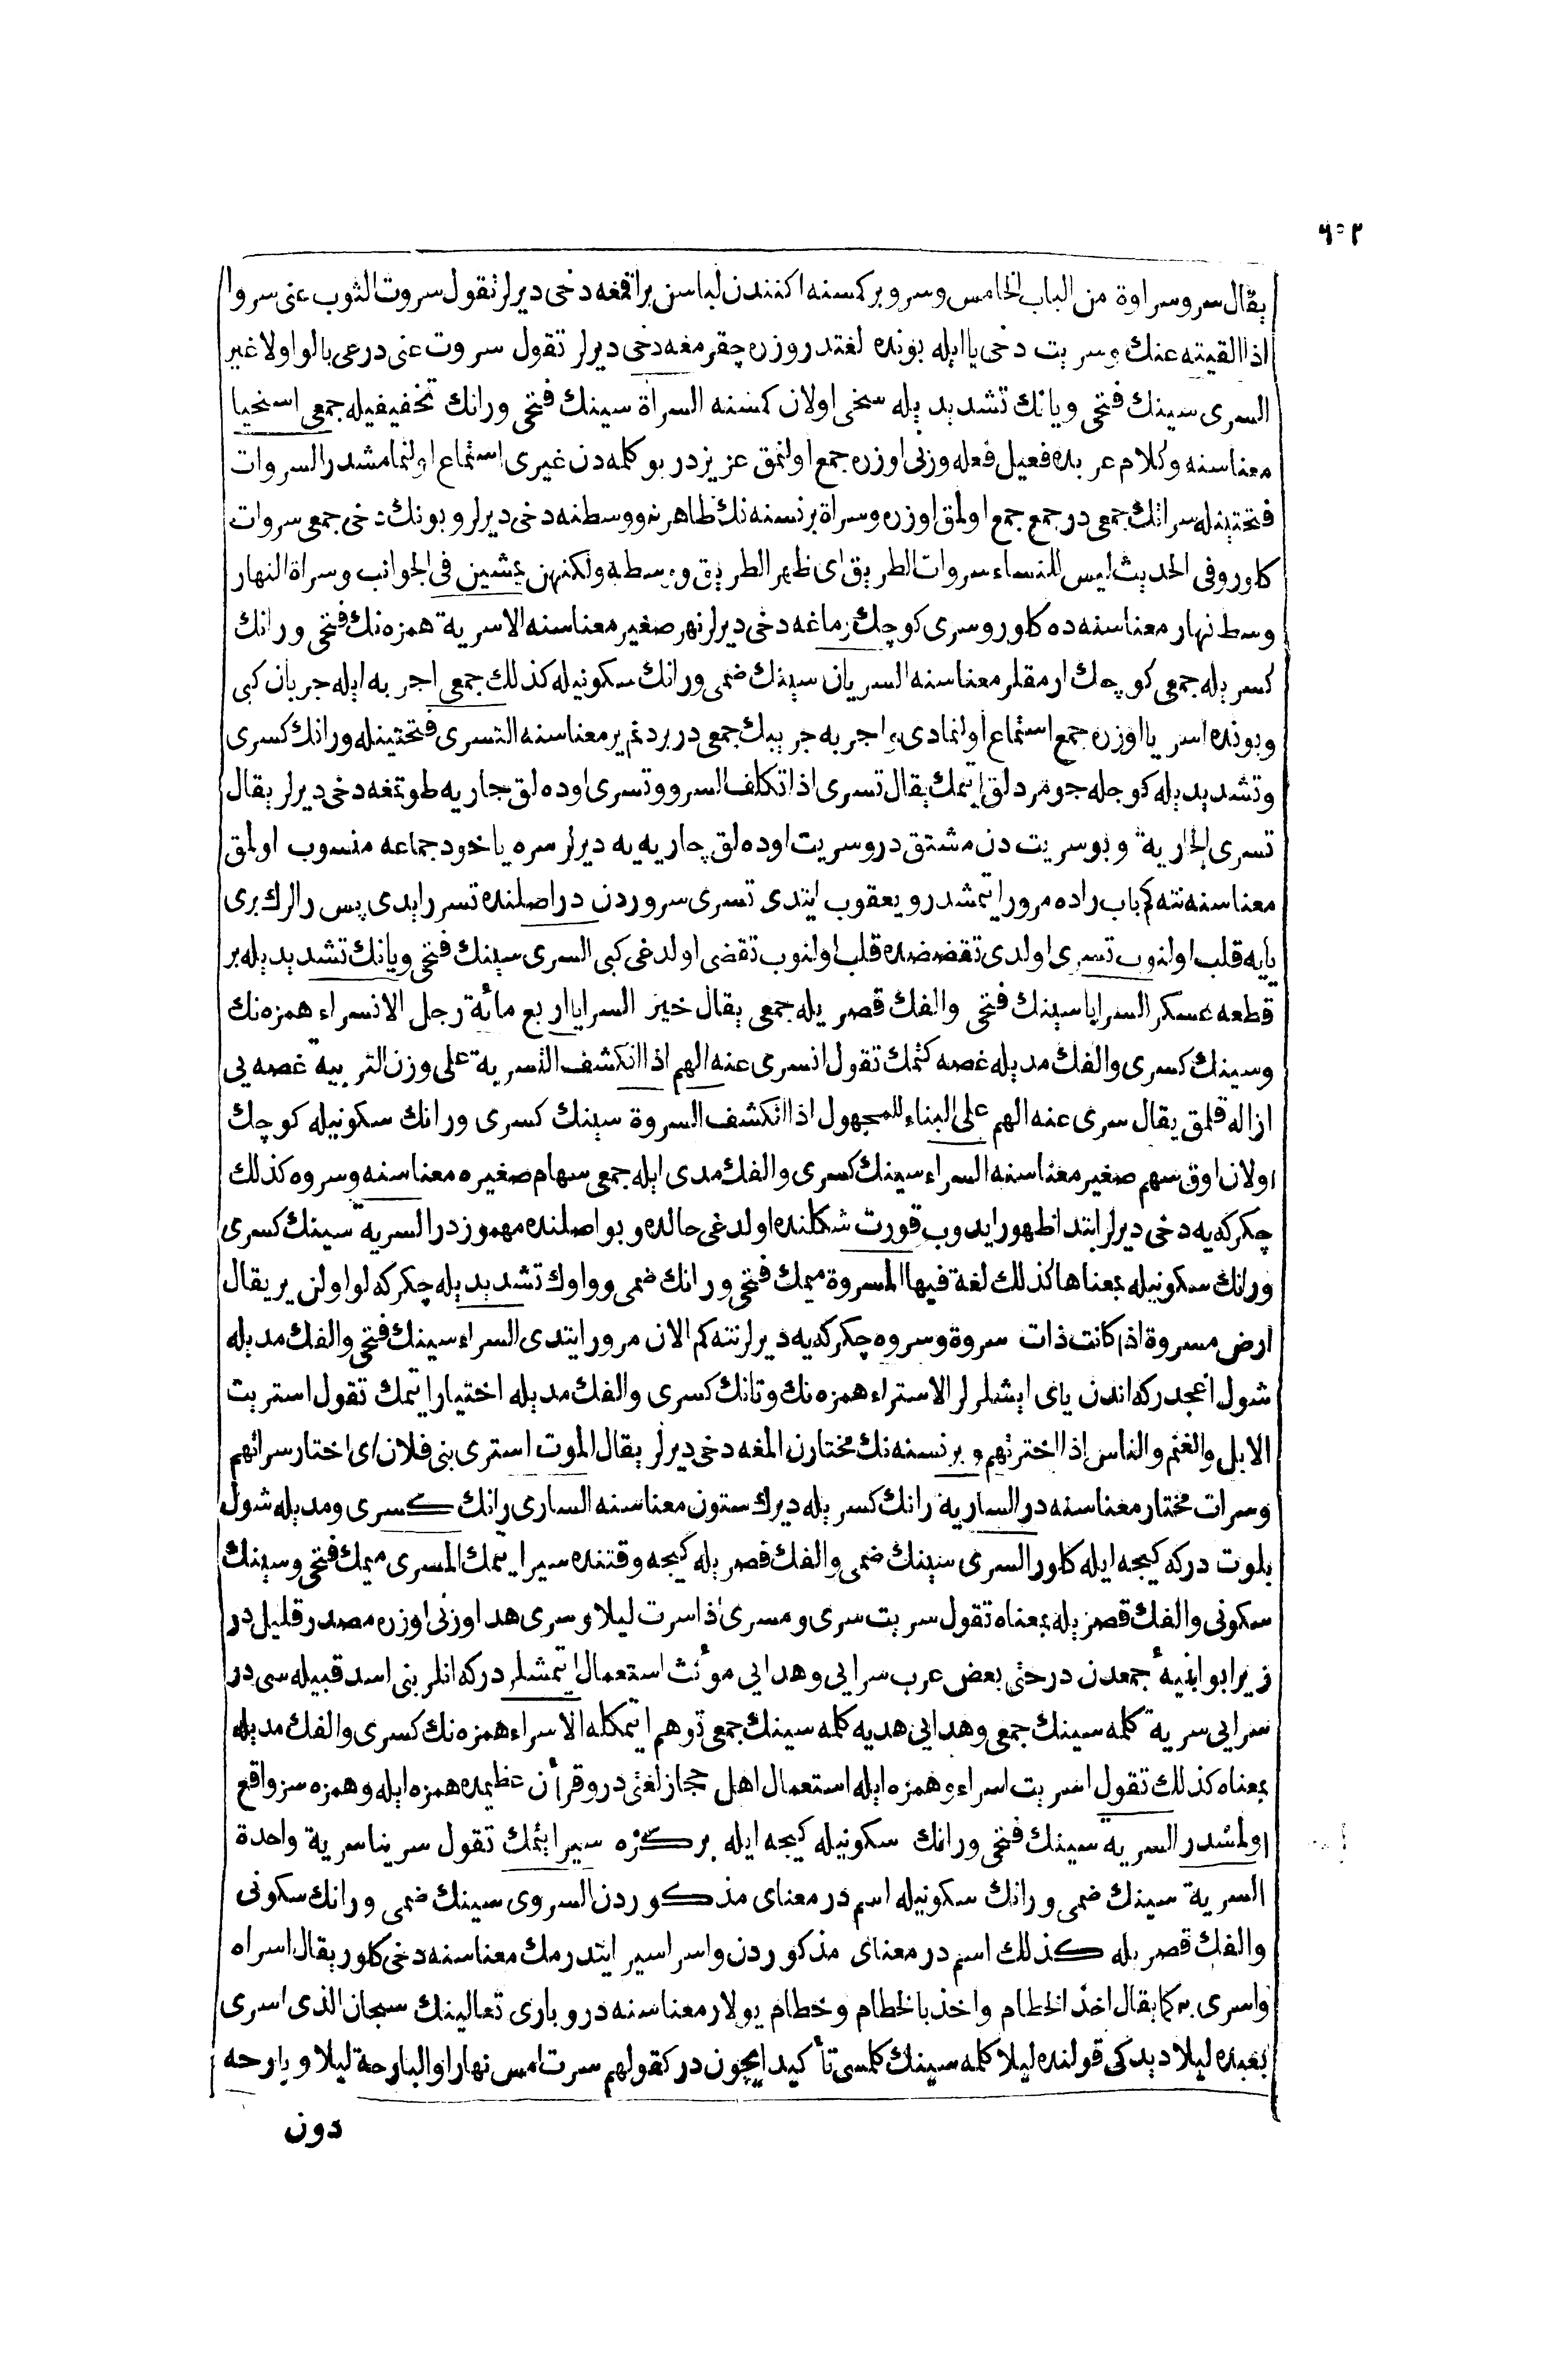 ٦٠٢
يقال سرو سراوة من الباب الخامس وسرو بر كمسنه اكنندن لباسن براقمغه دخى ديرلر تقول سروت الثوب عنى سروا
اذا القيته عنك وسريت دخى يا ايله بونده لغتدر وزره چقرمغه دخى ديرلر تقول سروت عنى درعى بالواو لا غير
السرى سينك فتحى ويانك تشديديله سخى اولان كمسنه السراة سينك فتحى ورانك تخفيفيله جمعى اسخيا
معناسنه وكلام عربده فعيل فعله وزنى اوزره جمع اولنمق عزيزدر بو كلمه دن غيرى استماع اولنمامشدر السروات
فتحتينله سراتك جمعى در جمع جمع اولمق اوزره وسراة بر نسنه نك ظاهرينه ووسطنه دخى ديرلر وبونك دخى جمعى سروات
كلور وفى الحديث ليس للنساء سروات الطريق اى ظهر الطريق ووسطه ولكنهن يمشين فى الجوانب وسراة النهار
وسط نهار معناسنه ده كلور وسرى كوچك ارماغه دخى ديرلر نهر صغير معناسنه الاسرية همزه نك فتحى ورانك
كسريله جمعى كوچك ارمقلر معناسنه السريان سينك ضمى ورانك سكونيله كذلك جمعى اجربه ايله جربان كبى
وبونده اسريا اوزره جمع استماع اولنمادى اجربه جريبك جمعى در بر دنم ير معناسنه التسرى فتحتينله ورانك كسرى
وتشديديله كوجله جومردلق ايتمك يقال تسرى اذا تكلف السرو وتسرى اوده لق جاريه طوتمغه دخى ديرلر يقال
تسرى الجارية وبو سريت دن مشتق در وسريت اوده لق جاريه يه ديرلر سره ياخود جماعه منسوب اولمق
معناسنه نته كم باب راده مرور ايتمشدر ويعقوب ايتدى تسرى سروردن در اصلنده تسرر ايدى پس رالرك برى
يايه قلب اولنوب تسرى اولدى تقضضده قلب اولنوب تقضى اولدغى كبى السرى سينك فتحى ويانك تشديديله بر
قطعه عسكر السرايا سينك فتحى والفك قصريله جمعى يقال خير السرايا اربع مائة رجل الانسراء همزه نك
وسينك كسرى والفك مديله غصه كتمك تقول انسرى عنه الهم اذا انكشف التسرية على وزن التربية غصه يى
ازاله قلمق يقال سرى عنه الهم على البناء للمجهول اذا انكشف السروة سينك كسرى ورانك سكونيله كوچك
اولان اوق سهم صغير معناسنه السراء سينك كسرى والفك مدى ايله جمعى سهام صغيره معناسنه وسروه كذلك
چكركه يه دخى ديرلر ابتدا ظهور ايدوب قورت شكلنده اولدغى حالده وبو اصلنده مهموزدر السرية سينك كسرى
ورانك سكونيله بمعناها كذلك لغة فيها المسروة ميمك فتحى ورانك ضمى وواوك تشديديله چكركه لو اولن ير يقال
ارض مسروة اذا كانت ذات سروة وسروه چكركه يه ديرلر نته كم الان مرور ايتدى السراء سينك فتحى والفك مديله
شول اغجدركه اندن ياى ايشلرلر الاستراء همزه نك وتانك كسرى والفك مديله اختيار ايتمك تقول استريت
الابل والغنم والناس اذا اخترتهم وبر نسنه نك مختارن المغه دخى ديرلر يقال الموت استرى بنى فلان اى اختار سراتهم
وسرات مختار معناسنه در السارية رانك كسريله ديرك ستون معناسنه السارى رانك كسرى ومديله شول
بلوت دركه كيجه ايله كلور السرى سينك ضمى والفك قصريله كيجه وقتنده سير ايتمك المسرى ميمك فتحى وسينك
سكونى والفك قصريله بمعناه تقول سريت سرى ومسرى اذا سرت ليلا وسرى هدا وزنى اوزره مصدر قليل در
زيرا بو ابنيه ٔ جمعدن در حتى بعض عرب سرايى وهدايى مؤنث استعمال ايتمشلردركه انلر بنى اسد قبيله سى در
سرايى سرية كلمه سينك جمعى وهدايى هديه كلمه سينك جمعى توهم ايتمكله الاسراء همزه نك كسرى والفك مديله
بمعناه كذلك تقول اسريت اسراء وهمزه ايله استعمال اهل حجاز لغتى در وقرأن عظيمده همزه ايله وهمزه سز واقع
اولمشدر السرية سينك فتحى ورانك سكونيله كيجه ايله بر كزه سير ايتمك تقول سرينا سرية واحدة
السرية سينك ضمى ورانك سكونيله اسم در معناى مذكوردن السروى سينك ضمى ورانك سكونى
والفك قصريله كذلك اسم در معناى مذكوردن واسرا سير ايتدرمك معناسنه دخى كلور يقال اسراه
واسرى به كما يقال اخذ الخطام واخذ بالخطام وخطام يولار معناسنه در وبارى تعالينك سبحان الذى اسرى
بعبده ليلا ديدكى قولنده ليلا كلمه سينك كلمسى تأكيد ايچون در كقولهم سرت امس نهارا والبارحة ليلا وبارحه
دون